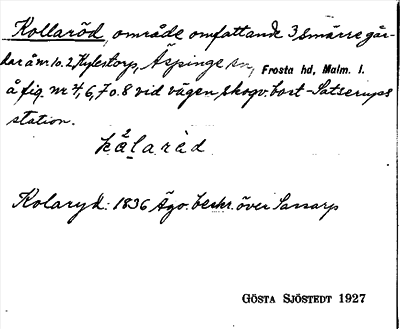 Kollaröd, område omfattande 3 smärre går-
dar å nr. 10. 2 Kylestorp, Äspinge sn, Frosta hd, Malm. l.
å fig. nr 4, 6, 7 o. 8 vid vägen skogv. bort - Satserups
station.
kålaröd
Kolaryd: 1836 Ägo. beskr. över Sassarp
GÖSTA SJÖSTEDT 1927